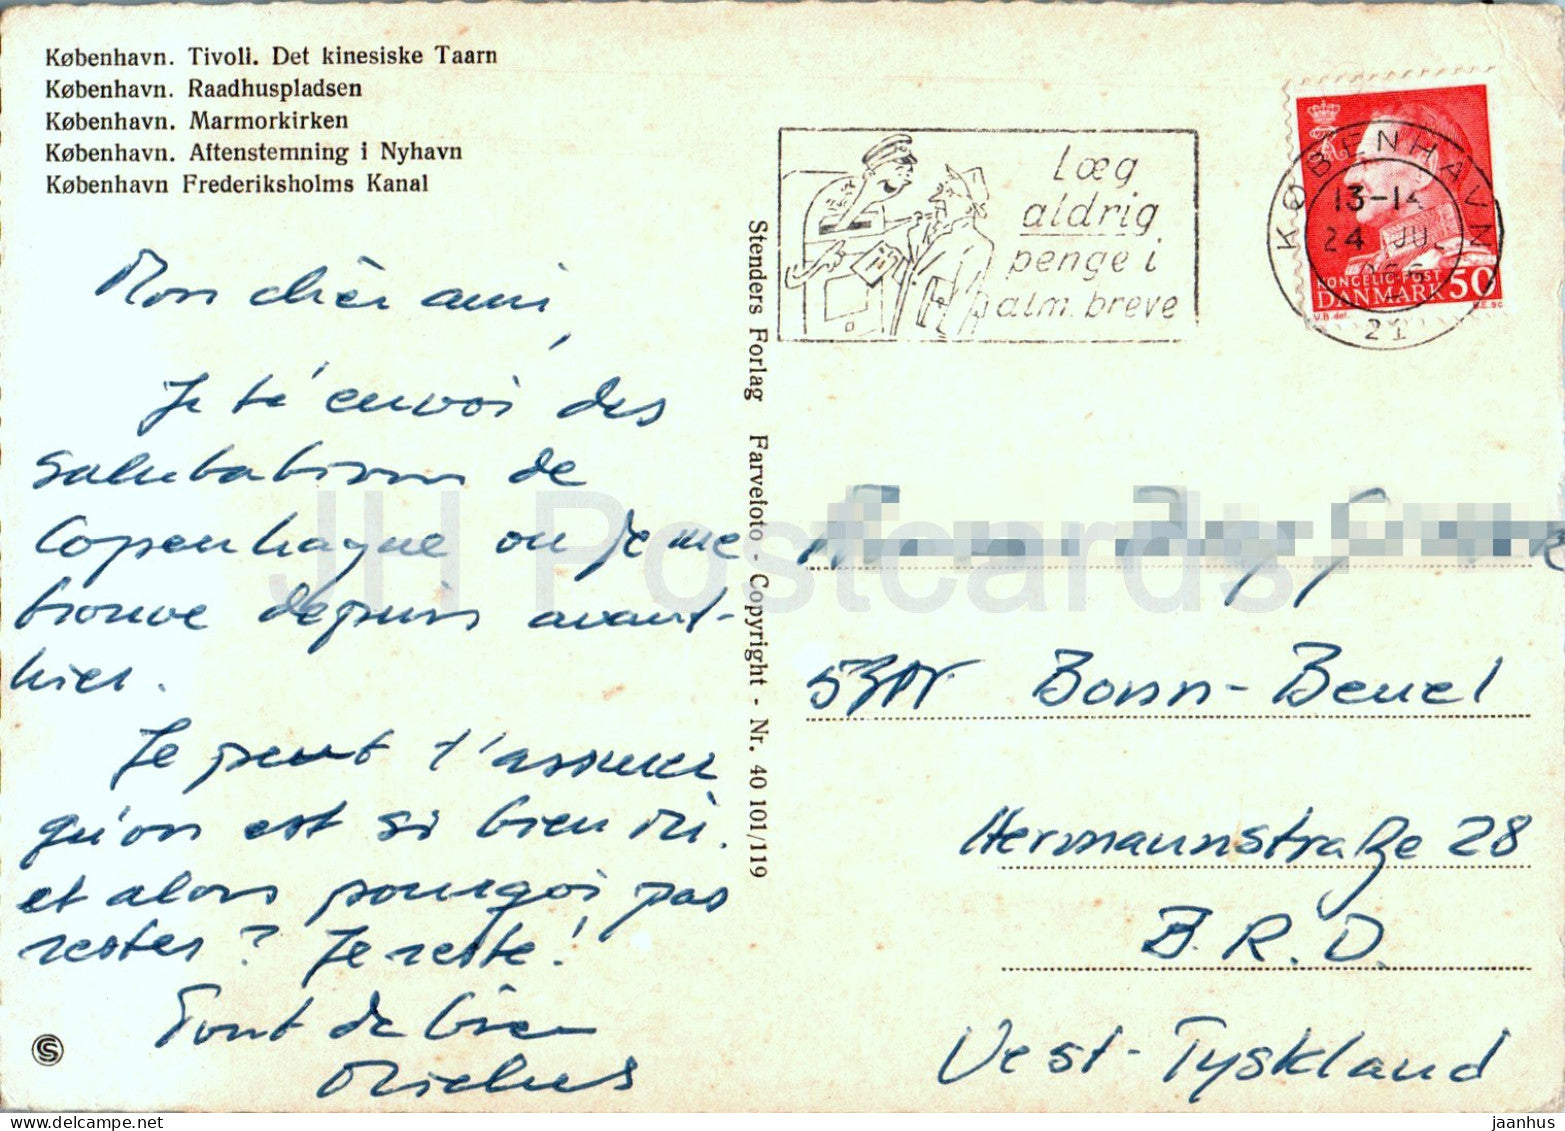 København. Tivoli. Det kinesiske Taarn
København. Raadhuspladsen
København. Marmorkirken
København. Aftenstemning i Nyhavn
København Frederiksholms Kanal
Mon chèr ami,
Je te' envoi des
salutations de
Copenhague ou je me
trouve depuis avant-
hier.
Je peut t'assurer
qu'on est si bien ici.
et alors pourqoi pas
rester? Je reste!
Tout de bien
Stenders Forlag Farvefoto - Copyright - Nr. 40 101/119
Læg
aldrig
penge i
alm. breve
KØBENHAVN
13-14
24 JUL
21
KONGELIG POST
DANMARK 50
V.B. del.
Bonn-Beuel
Hermannstraße 28
B.R.D.
Vest-Tyskland
JH Postcards
S
jaanhus